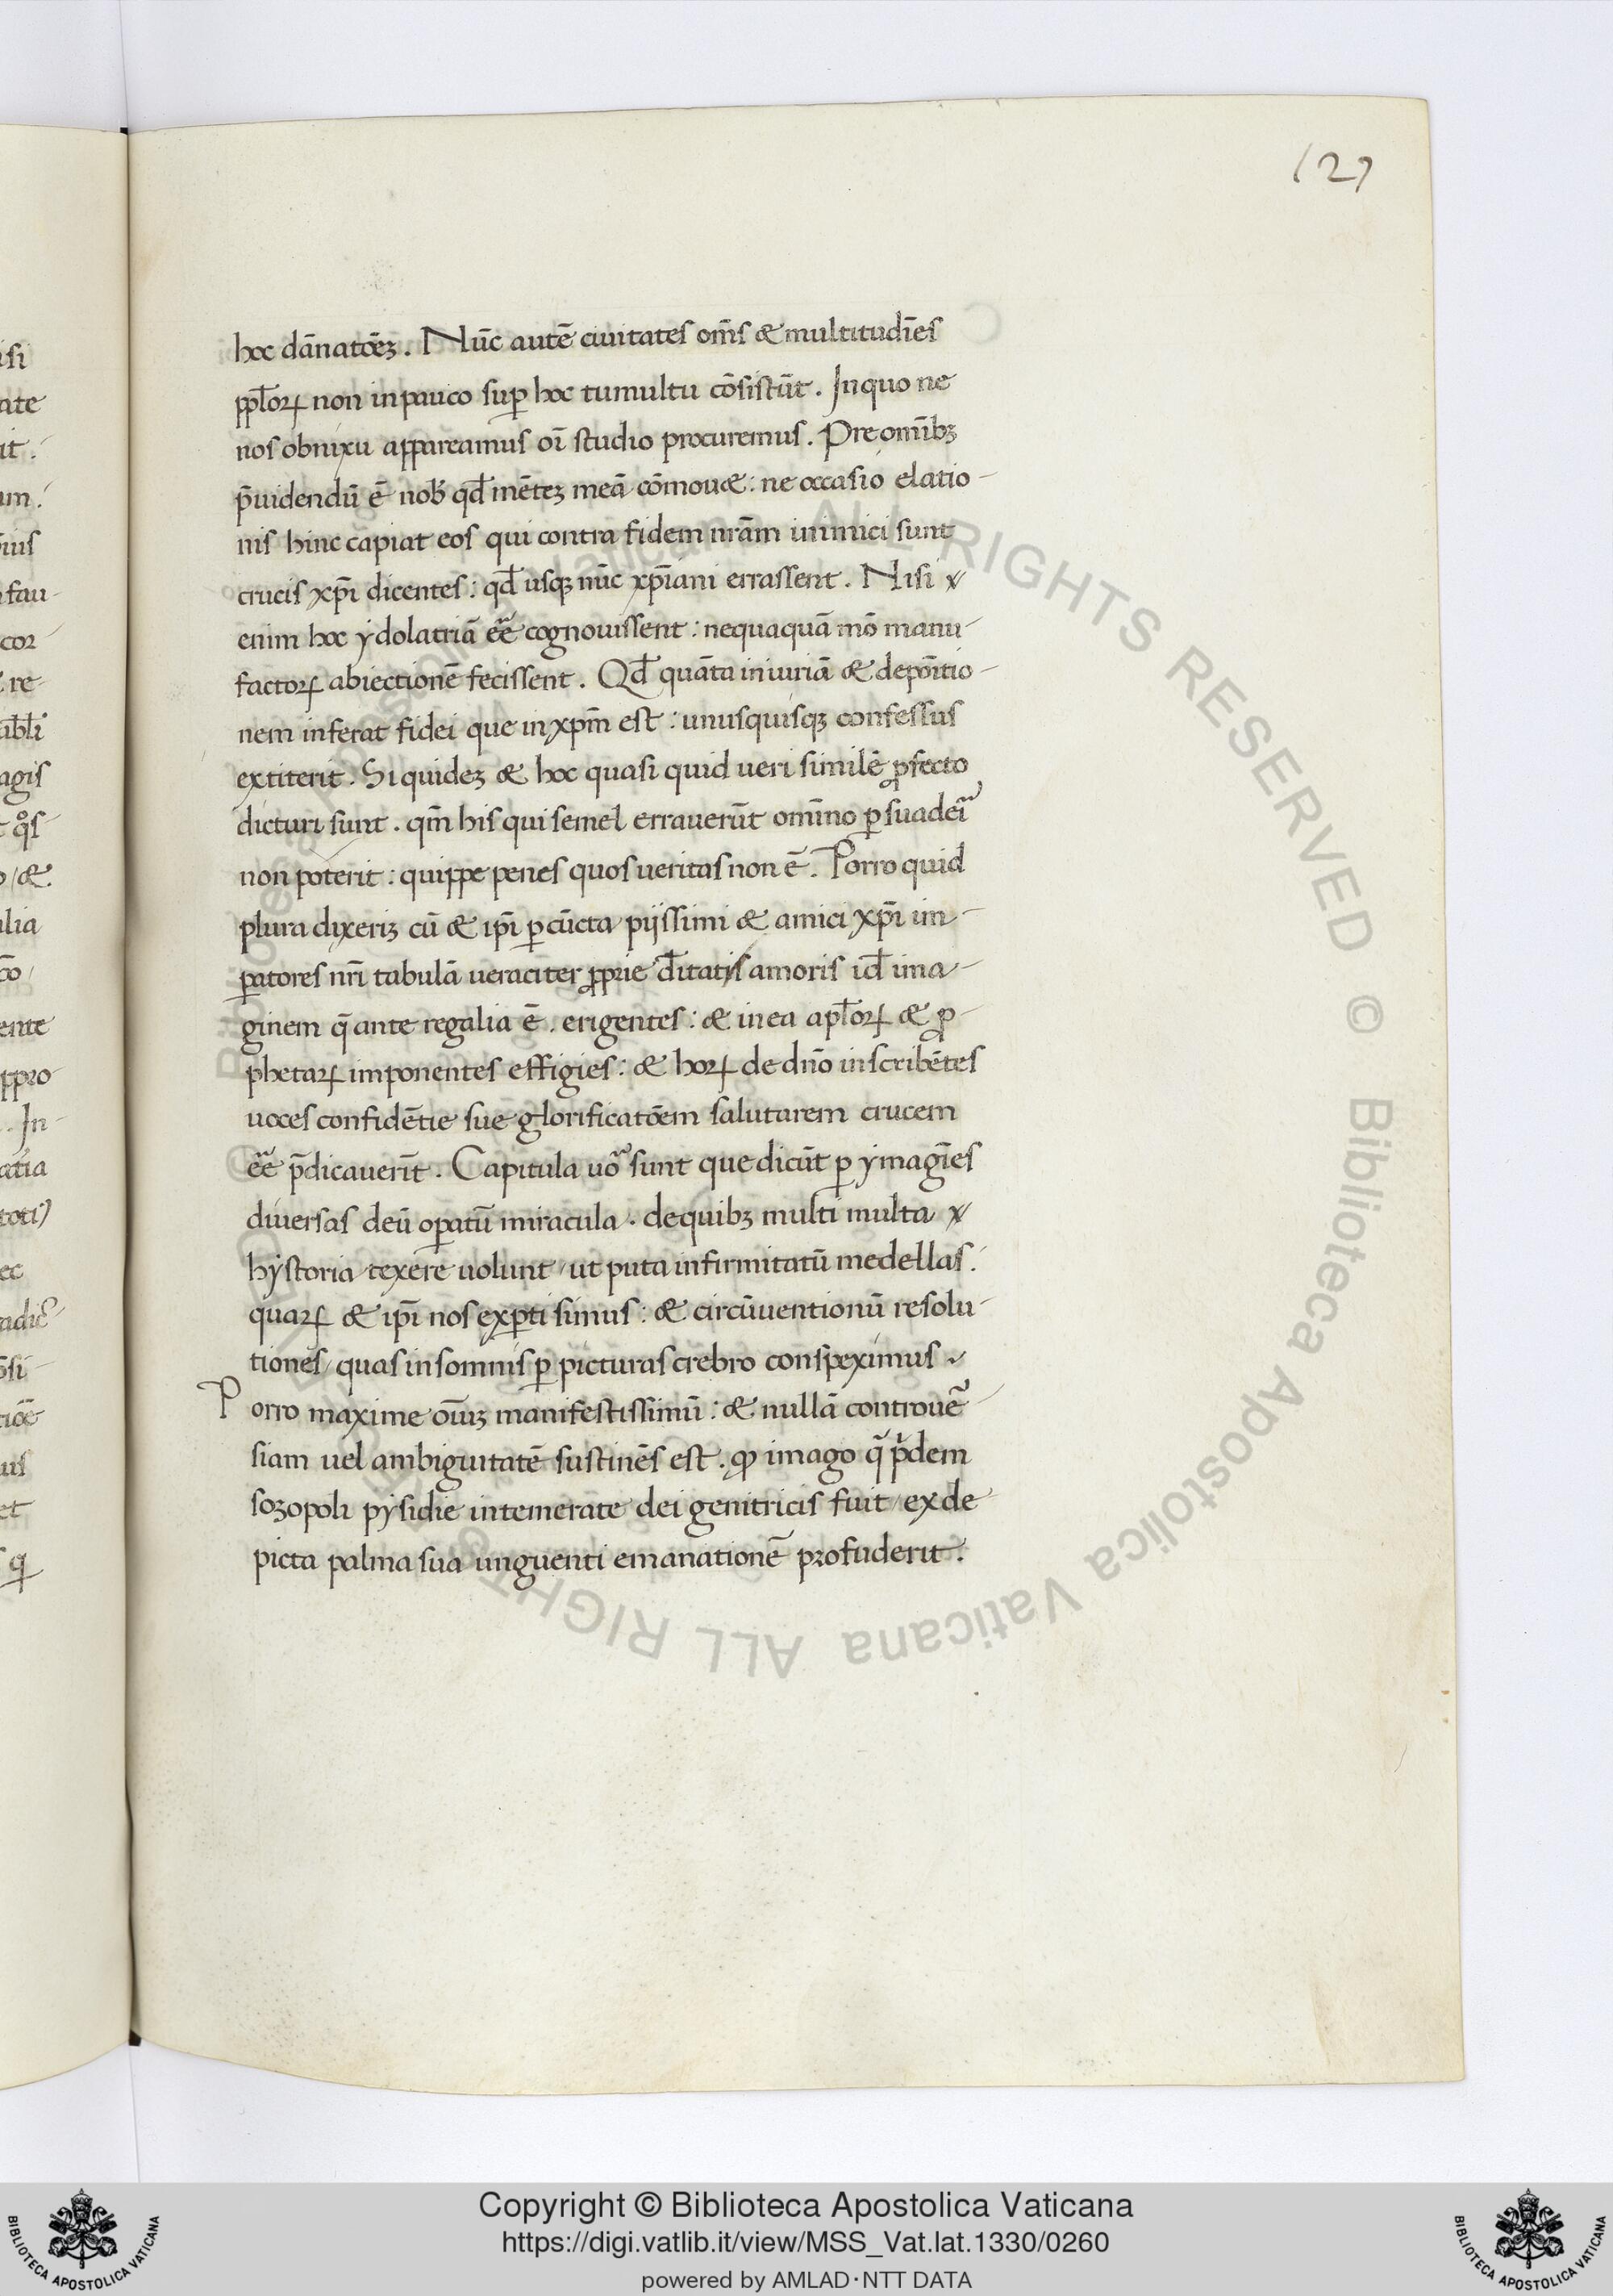 127
hoc dãnatõeȝ. Nũc autẽ ciuitates om̃s & multitudĩes
ppl̃oꝝ non in pauco suꝑ hoc tumultu cõsistũt. In quo ne
nos obnixu appareamus oĩ studio procuremus. Pre omĩbȝ
p̃uidendũ ẽ nob̃ qđ mẽteȝ meã cõmou&: ne occasio elatio-
nis hinc capiat eos qui contra fidem nr̃am inimici sunt
crucis xp̃i dicentes: qđ usqȝ nũc xp̃iani errassent. Nisi
enim hoc ydolatriã ẽe cognouissent: nequaquã mõ manu-
factoꝝ abiectionẽ fecissent. Qđ quãta iniuriã & depoñtio-
nem inferat fidei que in xpm̃ est: unusquisqȝ confessus
extiterit. Si quideȝ & hoc quasi quid ueri similẽ ꝓfecto
dicturi sunt. qm̃ his qui semel errauerũt omĩno ꝑsuaderĩ
non poterit: quippe penes quos ueritas non ẽ. Porro quid
plura dixeriȝ cũ & ip̃i ꝑ cũcta pijssimi & amici xp̃i im-
ꝑatores nr̃i tabulã ueraciter ꝓprie đitatis amoris iđ ima-
ginem q̃ ante regalia ẽ. erigentes: & in ea apl̃oꝝ & ꝓ-
phetaꝝ imponentes effigies: & hoꝝ de dño inscribẽtes
uoces confidẽtie sue glorificatõem salutarem crucem
ẽe p̃dicauerĩt. Capitula uõ sunt que dicũt ꝑ ymagĩes
diuersas deũ oꝑatũ miracula. de quibȝ multi multa
hystoria texere uolunt / ut puta infirmitatũ medellas.
quaꝝ & ip̃i nos exꝑti simus: & circũuentionũ resolu-
tiones / quas in somnis ꝑ picturas crebro conspeximus
Porro maxime oĩuȝ manifestissimũ: & nullã controuẽ-
siam uel ambiguitatẽ sustinẽs est. ꝙ imago q̃ p̃dem
sozopoli pysidie intemerate dei genitricis fuit / ex de
picta palma sua unguenti emanationẽ profuderit.
isi
ate
it:
um:
ius
fau-
cor
re-
abl̃i
agis
q̊s
/ &
ilia
cõ/
ente
ppro-
. In-
atia
toti
ec
adic̃
õsi-
tiõe
us
et
© Biblioteca Apostolica Vaticana ALL RIGHTS RESERVED © Biblioteca Apostolica Vaticana ALL RIGHTS RESERVED
Copyright © Biblioteca Apostolica Vaticana
https://digi.vatlib.it/view/MSS_Vat.lat.1330/0260
powered by AMLAD·NTT DATA
BIBLIOTECA APOSTOLICA VATICANA
BIBLIOTECA APOSTOLICA VATICANA